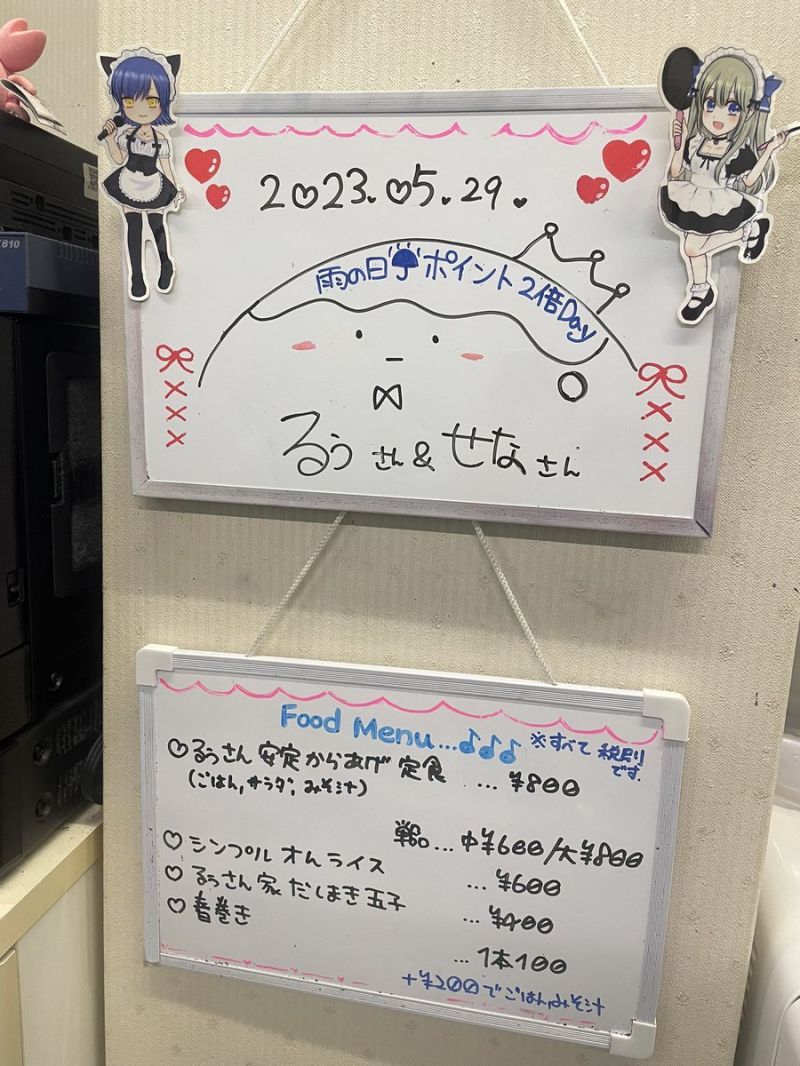 2023.05.29.
雨の日ポイント2倍Day
るぅさん&せなさん
Food Menu...♪♪♪
※すべて税別です.
♡るぅさん 安定からあげ定食 ... ¥800
(ごはん,サラダ,みそ汁)
単品...中¥600/大¥800
♡シンプルオムライス ... ¥600
♡るぅさん家だしまき玉子 ... ¥400
♡春巻き ... 1本100
+¥200でごはん,みそ汁
810